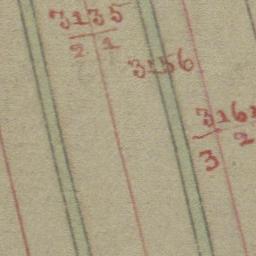 3135
2 1
3156
316
3 2